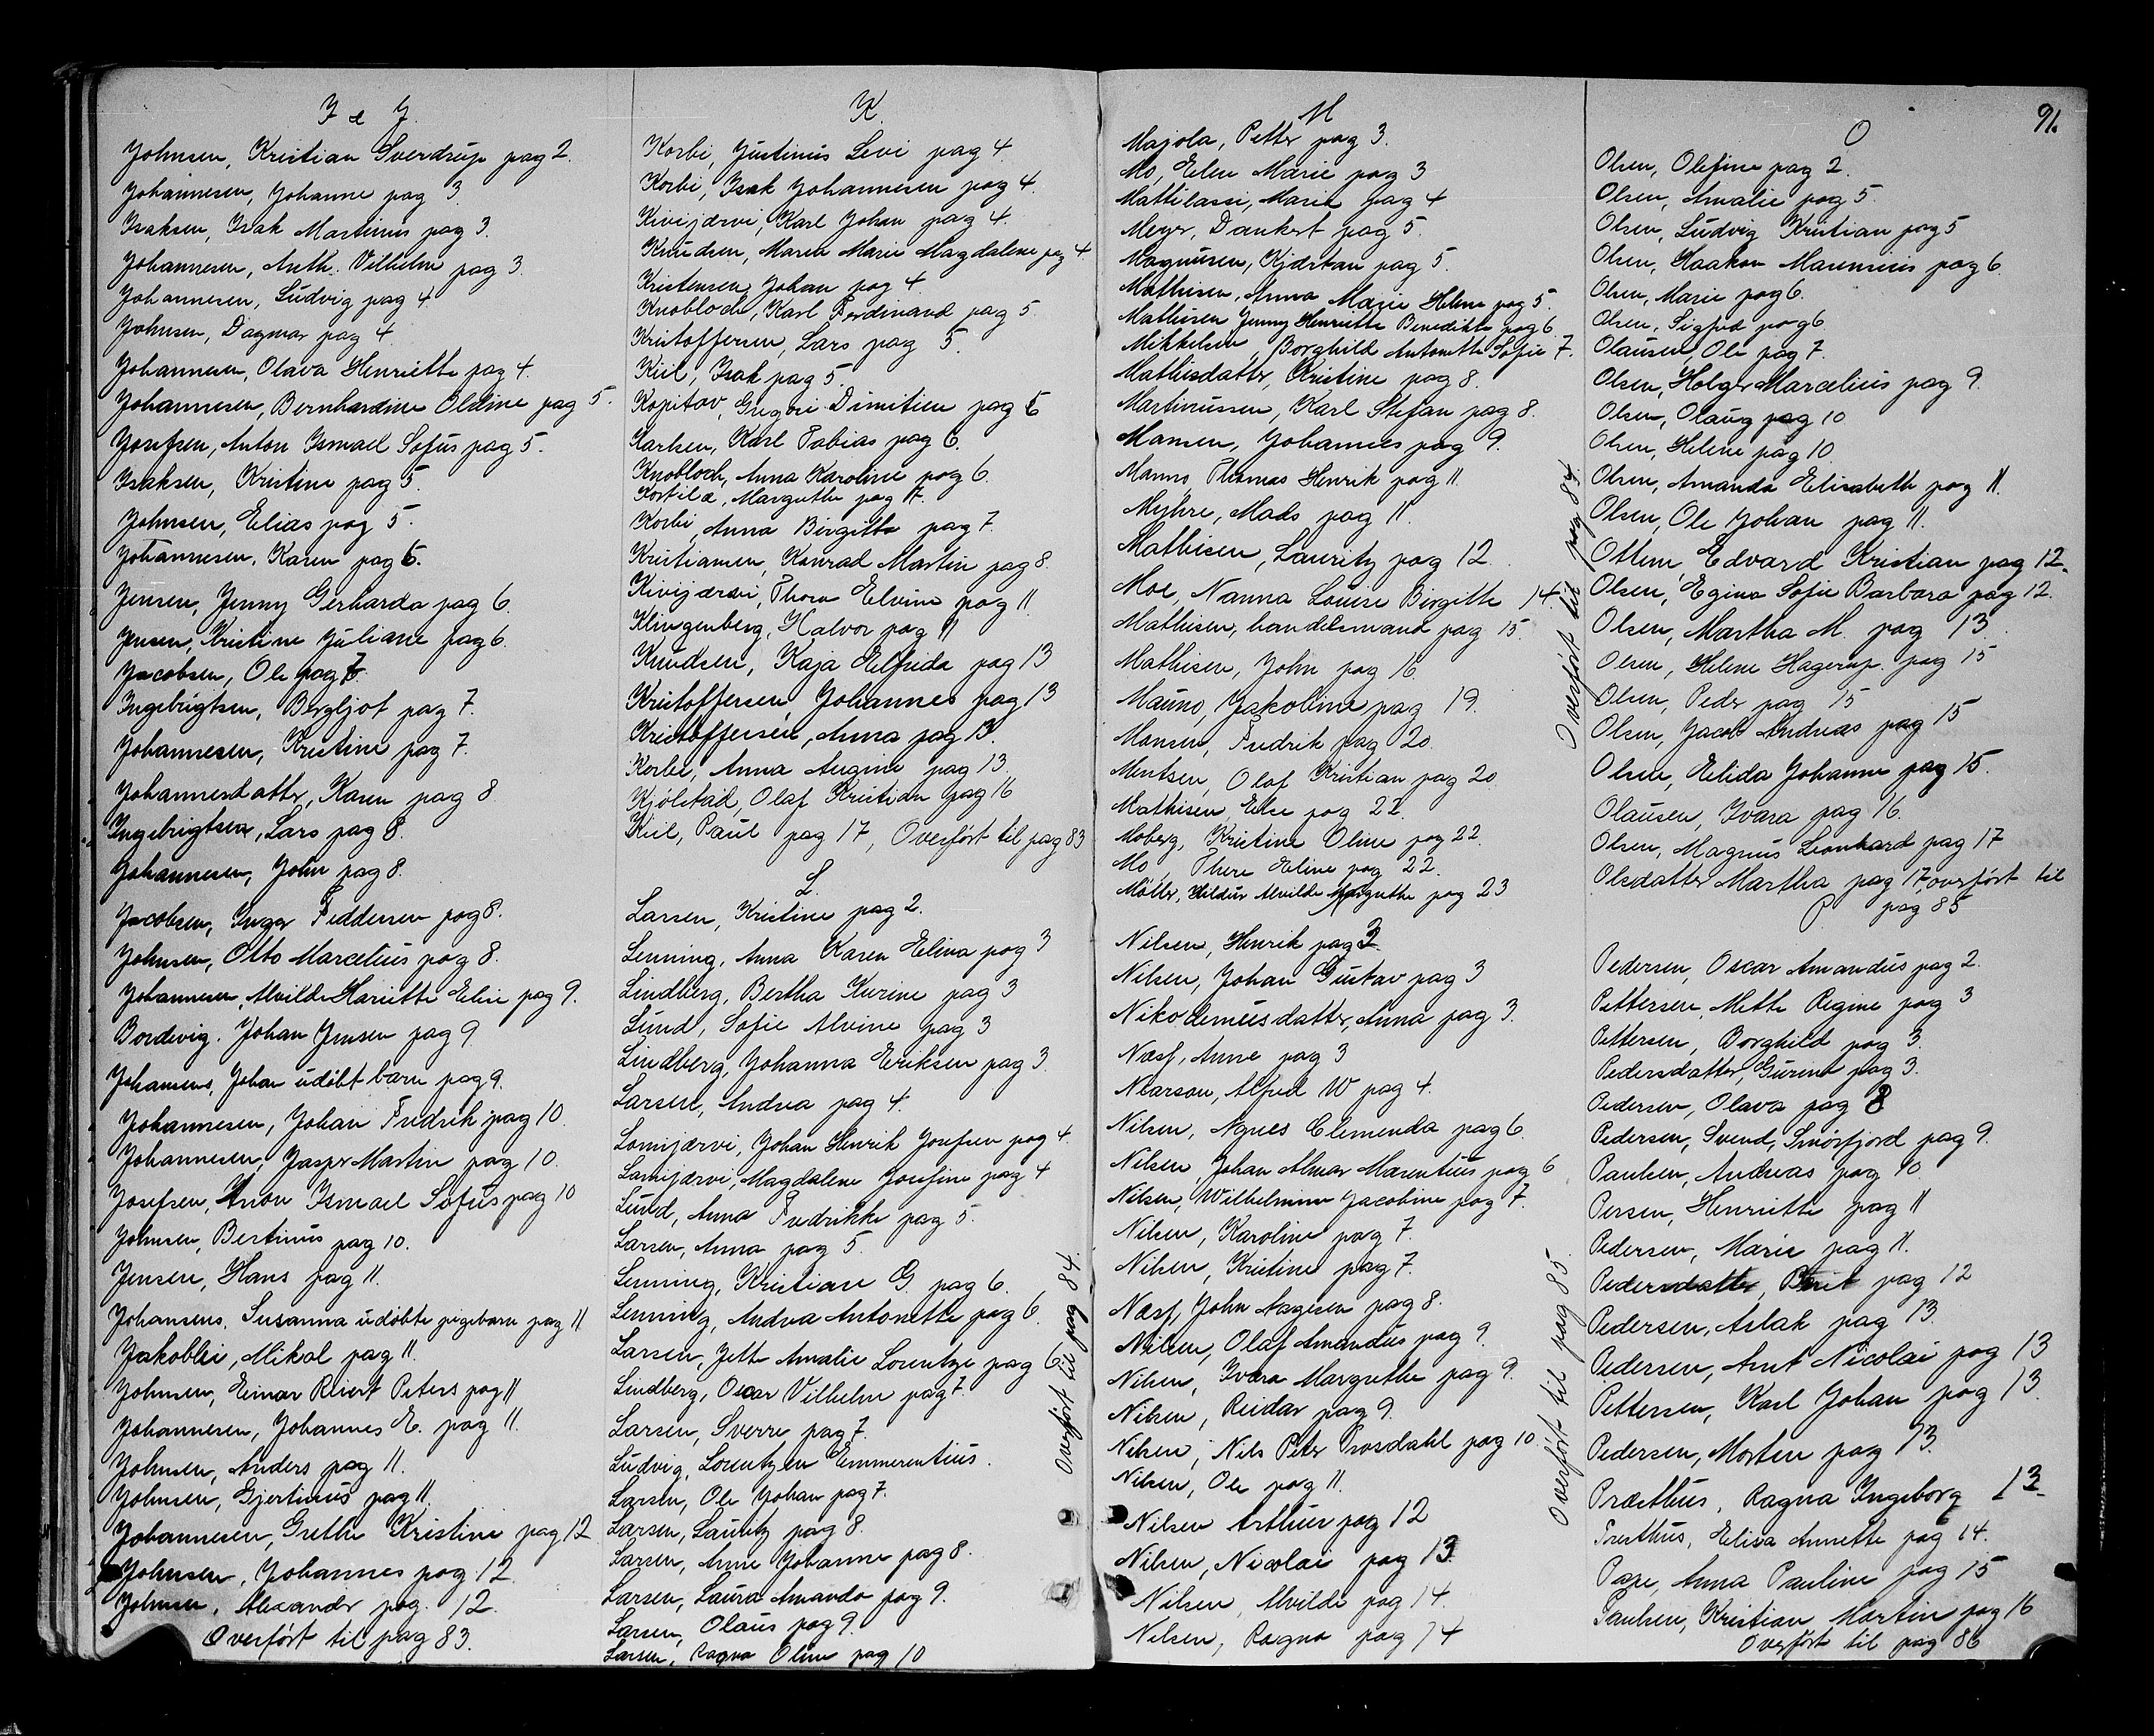 I & J.
Johnsen, Kristian Sverdrup pag 2.
Johannesen, Johanne pag 3.
Isaksen, Isak Martinus pag 3.
Johannesen, Anth. Vilhelm pag 3.
Johannesen, Ludvig pag 4.
Johnsen, Dagmar pag 4.
Johannesen, Olava Henriette pag 4.
Johannesen, Bernhardine Oldine pag 5.
Josefsen, Anton Ismael Sofus pag 5.
Isaksen, Kristine pag 5.
Johnsen, Elias pag 5.
Johannesen, Karen pag 6.
Jensen, Jenny Gerharda pag 6.
Jensen, Kristine Juliane pag 6.
Jacobsen, Ole pag 7.
Ingebrigtsen, Bergljot pag 7.
Johannesen, Kristine pag 7.
Johannesdatter, Karen pag 8
Ingebrigtsen, Lars pag 8.
Johannesen, John pag 8.
Jacobsen, Inger Feddersen pag 8.
Johnsen, Otto Marcelius pag 8.
Johannesen, Alvilde Hariette Elise pag 9.
Bordevig. Johan Jensen pag 9
Johansens, Johan udöbt barn pag 9.
Johannesen, Johan Fredrik pag 10.
Johannesen, Jasper Martin pag 10.
Josefsen, Anton Ismael Sofus pag 10
Johnsen, Bertinus pag 10.
Jensen, Hans pag 11.
Johansens, Susanna udöbte pigebarn pag 11
Jakoblii, Mikal pag 11.
Johnsen, Einar Reiert Peters pag 11
Johannesen, Johannes E. pag 11.
Johnsen, Anders pag 11.
Johnsen, Gjertinus pag 11.
Johannesen, Grethe Kristine pag 12
Johnsen, Johannes pag 12.
Johnsen, Alexander pag. 12.
Overfört til pag 83.
K.
Korbi, Justinus Levi pag 4.
Korbi, Isak Johannesen pag 4.
Kivijærvi, Karl Johan pag 4.
Knudsen, Maren Marie Magdalene pag 4
Kristensen, Johan pag 4.
Knobloch, Karl Ferdinand pag 5.
Kristoffersen, Lars pag 5.
Kiil, Isak pag 5.
Kopitov, Gregori Dimitien pag 6
Karlsen, Karl Tobias pag 6.
Knobloch, Anna Karoline pag 6.
Kortila, Margrethe pag 7.
Korbi, Anna Birgitta pag 7.
Kristiansen, Konrad Martin pag 8.
Kivijærvi, Thora Elvine pag 11.
Klingenberg, Halvor pag 11
Knudsen, Kaja Elfrida pag 13
Kristoffersen, Johannes pag 13
Kristoffersen, Anna pag 13.
Korbi, Anna Augine pag 13.
Kjölstad, Olaf Kristian pag 16
Kiil, Paul pag 17, Overfört til pag 83
L.
Larsen, Kristine pag 2.
Lenning, Anna Karen Elina pag 3
Lindberg, Bertha Kurine pag 3
Lund, Sofie Alvine pag 3
Lindberg, Johanna Eriksen pag 3.
Larsen, Andrea pag 4.
Lomijærvi, Johan Henrik Josefsen pag 4.
Lamijærvi, Magdalene Josefine pag 4
Lund, Anna Fredrikke pag 5.
Larsen, Anna pag 5.
Lenning, Kristian G. pag 6.
Lenning, Andrea Antonette pag 6.
Larsen, Jette Amalie Lorentze pag 6.
Lindberg, Oscar Vilhelm pag 7.
Larsen, Sverre pag 7.
Ludvig, Lorentzen Emmerentius.
Larsen, Ole Johan pag 7.
Larsen, Lauritz pag 8.
Larsen, Anne Johanne pag 8.
Larsen, Laura Amanda pag 9.
Larsen, Olaus pag 9.
Larsen, Ragna Oline pag 10
Overfört til pag 84.
M
Majola, Petter pag 3.
Mo, Elen Marie pag 3
Mattilassi, Marie pag 4
Meyer, Dankert pag 5.
Magnusen, Kjærstan pag 5.
Mathisen, Anna Marie Helene pag 5.
Mathisen Jenny Henriette Benedikte pag 6
Mikkelsen, Borghild Antonette Sofie 7.
Mathisdatter, Kristine pag 8.
Martinussen, Karl Stefan pag 8.
Mansen, Johannes pag 9.
Manno Thomas Henrik pag 11.
Myhre, Mads pag 11.
Mathisen, Lauritz pag 12
Moe, Nanna Louise Birgitte 14.
Mathisen, handelsmand pag 15.
Mathisen, John pag 16.
Mauno, Jakobine pag 19.
Monsen, Fredrik pag 20.
Mentsen, Olaf Kristian pag 20
Mathisen, Else pag 22.
Moberg, Kristine Oline pag 22.
Mo, There Eline pag 22.
Möller, Hildur Alvilde Margrethe pag 23
Nilsen, Henrik pag 3.
Nilsen, Johan Gustav pag 3
Nikodemusdatter, Anna pag 3.
Næss, Anne pag 3
Nlarson, Alfred W pag 4.
Nilsen, Agnes Clemenda pag 6.
Nilsen, Johan Almar Marentius pag 6
Nilsen, Wilhelmine Jacobine pag 7.
Nilsen, Karoline pag 7.
Nilsen, Kristine pag 7.
Næss, John Aagesen pag 8.
Nilsen, Olaf Amandus pag 9.
Nilsen, Ivara Margrethe pag 9.
Nilsen, Reidar pag 9.
Nilsen, Nils Peter Prosdahl pag 10
Nilsen, Ole pag 11.
Nilsen Arthur pag 12
Nilsen, Nicolai pag 13.
Nilsen, Alvilde pag 14.
Nilsen, Ragna pag 14
Overfört til pag 84.
Overfört til pag 85.
91.
O
Olsen, Olefine pag 2.
Olsen, Amalie pag 5.
Olsen, Ludvig Kristian pag 5
Olsen, Haakon Marensius pag 6.
Olsen, Marie pag 6.
Olsen, Sigfred pag 6.
Olausen, Ole pag 7.
Olsen, Holger Marcelius pag 9.
Olsen, Olaug pag 10
Olsen, Helene pag 10.
Olsen, Amanda Elisabeth pag 11.
Olsen, Ole Johan pag 11.
Ottem, Edvard Kristian pag 12.
Olsen, Egina Sofie Barbara pag 12.
Olsen, Martha M. pag 13.
Olsen, Helene Hagerup. pag 15
Olsen, Peder pag 15
Olsen, Jacob Andreas pag 15
Olsen, Elida Johanne pag 15.
Olausen, Ivara pag 16.
Olsen, Magnus Leonhard pag 17
Olsdatter Martha pag 17, overfört til
pag 85
P
Pedersen, Oscar Amandus pag 2.
Pettersen, Mette Regine pag 3
Pettersen, Borghild pag 3.
Pedersdatter, Gurine pag 3.
Pedersen, Olava pag 8
Pedersen, Svend, Smörfjord pag 9.
Paulsen, Andreas pag 10.
Persen, Henriette pag 11
Pedersen, Marie pag 11.
Pedersdatter, Berit pag 12
Pedersen, Aslak pag 13.
Pedersen, Arnt Nicolai pag 13
Pettersen, Karl Johan pag 13.
Pedersen, Morten pag 13.
Præsthus, Ragna Ingeborg 13.
Presthus, Elisa Annette pag 14.
Pape, Anna Pauline pag 15
Paulsen, Kristian Martin pag 16
Overfört til pag 86